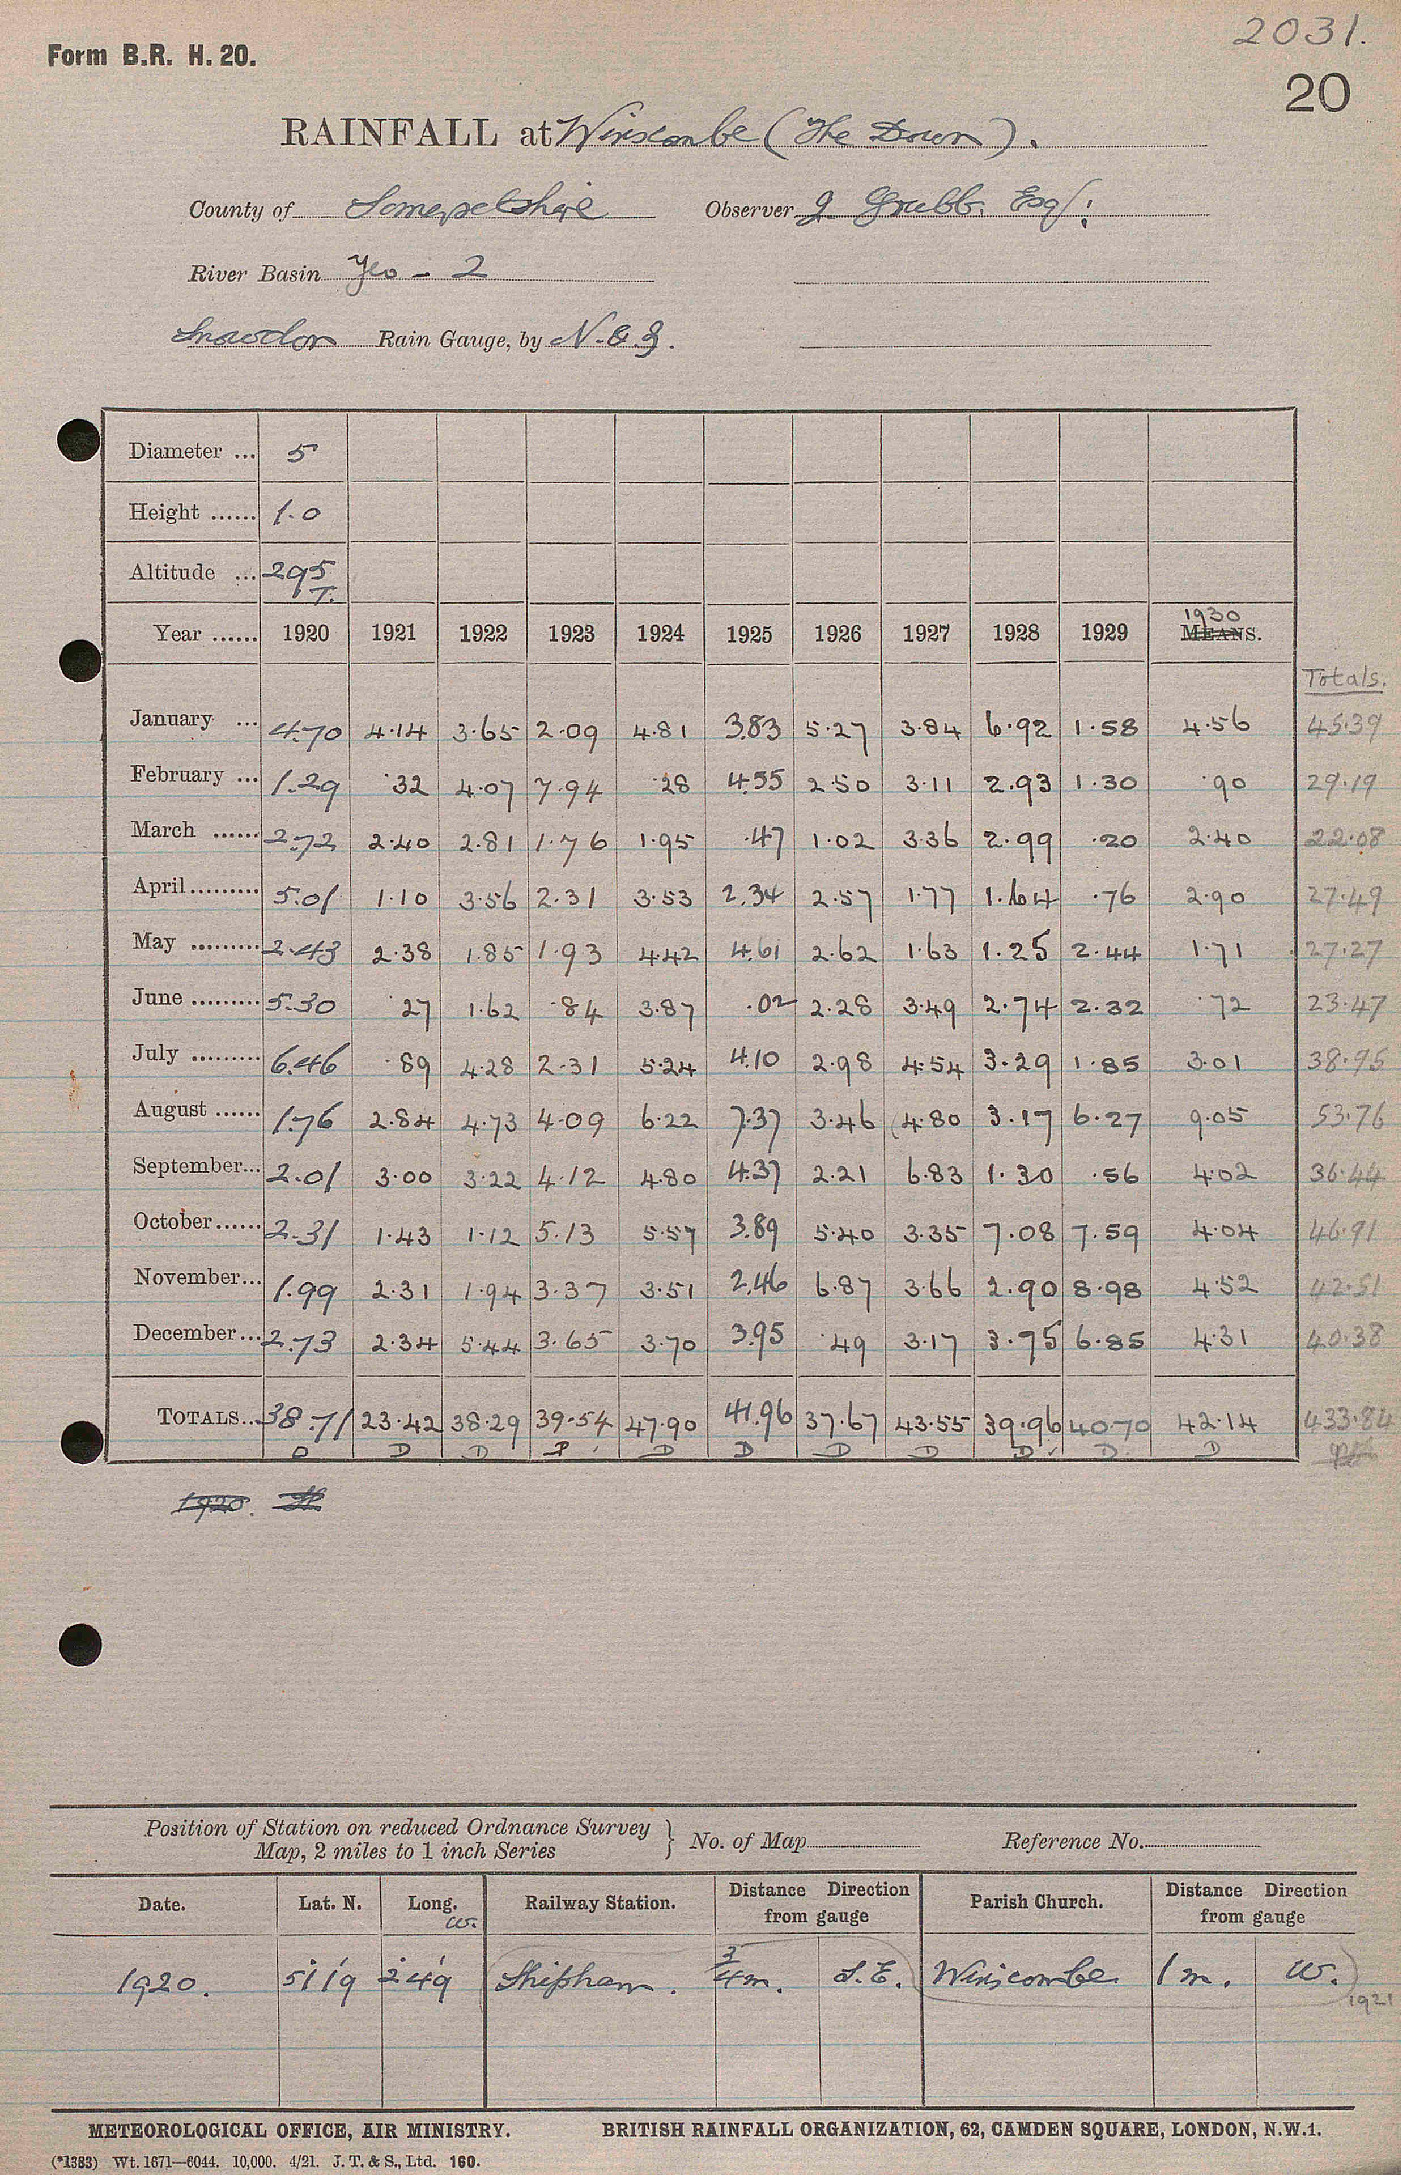 2031.
Form B.R. H. 20.
20
RAINFALL at Winscombe (The Down).
County of Somersetshire Observer J Grubb. Esq:
River Basin Yeo - 2
Snowdon Rain Gauge, by N. & Z.
Diameter ... 5
Height ...... 1.0
Altitude ... 295
T.
1930
Year ...... 1920 1921 1922 1923 1924 1925 1926 1927 1928 1929 MEANS.
Totals.
January ... 4.70 4.14 3.65 2.09 4.81 3.83 5.27 3.84 6.92 1.58 4.56 45.39
February ... 1.29 .32 4.07 7.94 .28 4.55 2.50 3.11 2.93 1.30 .90 29.19
March ...... 2.72 2.40 2.81 1.76 1.95 .47 1.02 3.36 2.99 .20 2.40 22.08
April......... 5.01 1.10 3.56 2.31 3.53 2.34 2.57 1.77 1.64 .76 2.90 27.49
May ......... 2.43 2.38 1.85 1.93 4.42 4.61 2.62 1.63 1.25 2.44 1.71 27.27
June ......... 5.30 .27 1.62 .84 3.87 .02 2.28 3.49 2.74 2.32 .72 23.47
July ......... 6.46 .89 4.28 2.31 5.24 4.10 2.98 4.54 3.29 1.85 3.01 38.95
August ...... 1.76 2.84 4.73 4.09 6.22 7.37 3.46 4.80 3.17 6.27 9.05 53.76
September... 2.01 3.00 3.22 4.12 4.80 4.37 2.21 6.83 1.30 .56 4.02 36.44
October...... 2.31 1.43 1.12 5.13 5.57 3.89 5.40 3.35 7.08 7.59 4.04 46.91
November... 1.99 2.31 1.94 3.37 3.51 2.46 6.87 3.66 2.90 8.98 4.52 42.51
December... 2.73 2.34 5.44 3.65 3.70 3.95 .49 3.17 3.75 6.85 4.31 40.38
TOTALS... 38.71 23.42 38.29 39.54 47.90 41.96 37.67 43.55 39.96 40.70 42.14 433.84
D D D P D D D D D D D
1920.
Position of Station on reduced Ordnance Survey
Map, 2 miles to 1 inch Series } No. of Map Reference No.
Date. Lat. N. Long. W. Railway Station. Distance Direction from gauge Parish Church. Distance Direction from gauge
1920. 51 19 2 49 Shipham. 3/4 m. S.E. Winscombe 1 m. W.
1921
METEOROLOGICAL OFFICE, AIR MINISTRY. BRITISH RAINFALL ORGANIZATION, 62, CAMDEN SQUARE, LONDON, N.W.1.
(*1383) Wt. 1671—6044. 10,000. 4/21. J. T. & S., Ltd. 160.